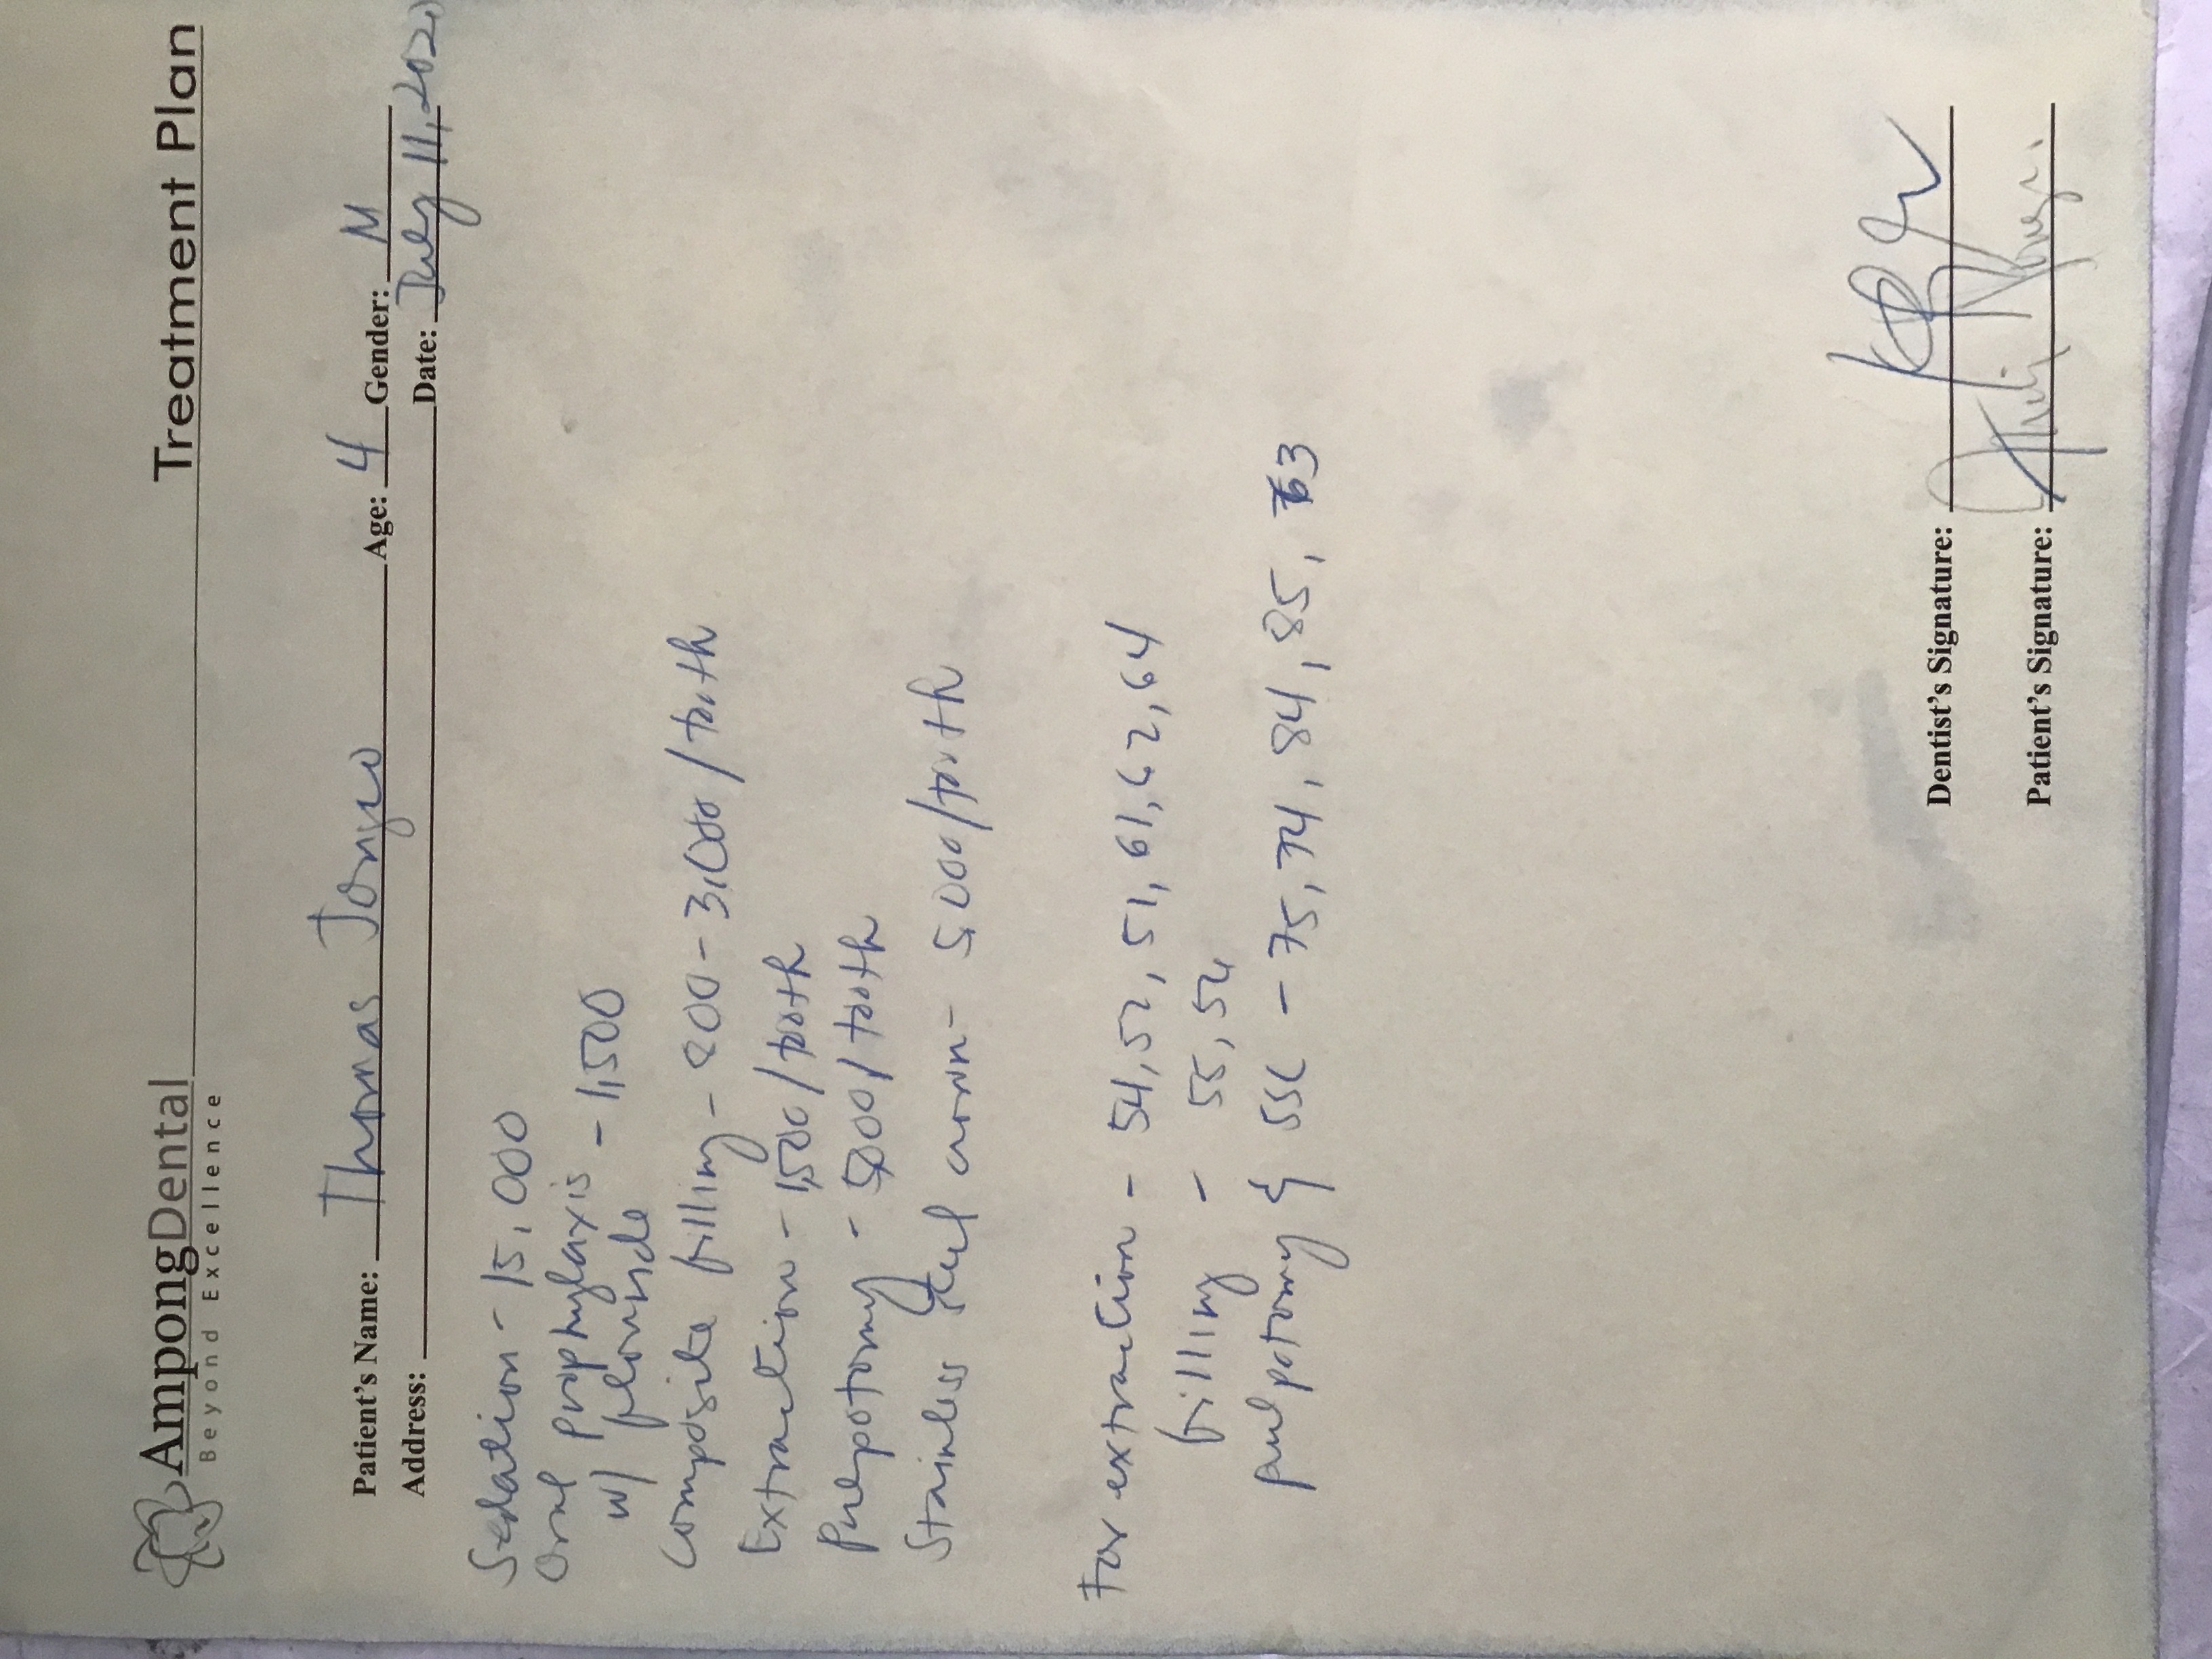 AmpongDental Treatment Plan
Beyond Excellence
Patient's Name: Thomas Jonyco Age: 4 Gender: M
Address: Date: July 11, 202
Sedation - 15,000
Oral prophylaxis - 1,500
w/ flouride
Composite filling - 800 - 3,000/tooth
Extraction - 1,500/tooth
Pulpotomy - 5,000/tooth
Stainless steel crown - 5,000/tooth
For extraction - 54, 52, 51, 61, 62, 64
filling - 55, 54
pulpotomy & SSC - 75, 74, 84, 85, 63
Dentist's Signature:
Patient's Signature: